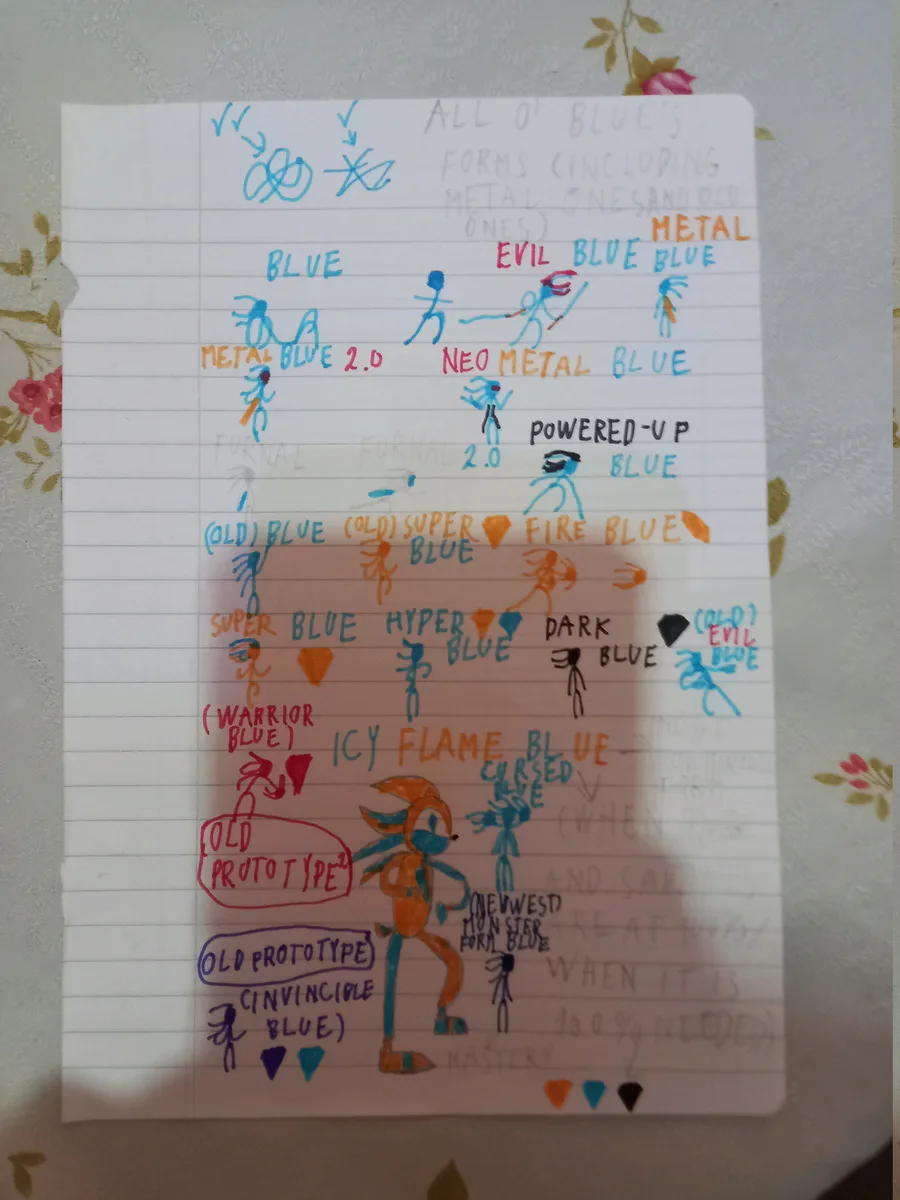 ALL O' BLUE'S
FORMS (INCLUDING
METAL ONES AND OLD
ONES)
BLUE
EVIL BLUE
METAL
BLUE
METAL BLUE 2.0
NEO METAL BLUE
2.0
POWERED-UP
BLUE
(OLD) BLUE
(OLD) SUPER
BLUE
FIRE BLUE
SUPER BLUE
HYPER
BLUE
DARK
BLUE
(OLD)
EVIL
BLUE
(WARRIOR
BLUE)
ICY FLAME BLUE
CURSED
BLUE
OLD
PROTOTYPE
(NEWEST)
MONSTER
FORM BLUE
OLD PROTOTYPE
(INVINCIBLE
BLUE)
(WHEN
AND
WHEN IT IS
100% NEEDED)
MASTERY